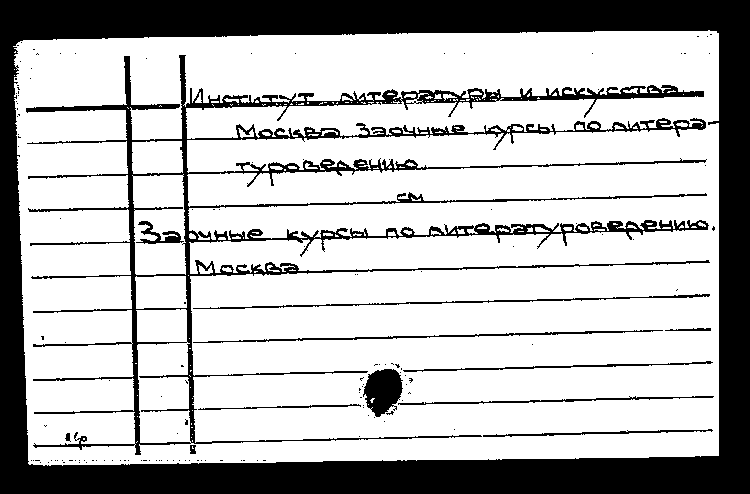 Институт литературы и искусства
Москва. Заочные курсы по литера-
туроведению.
см
Заочные курсы по литературоведению.
Москва.